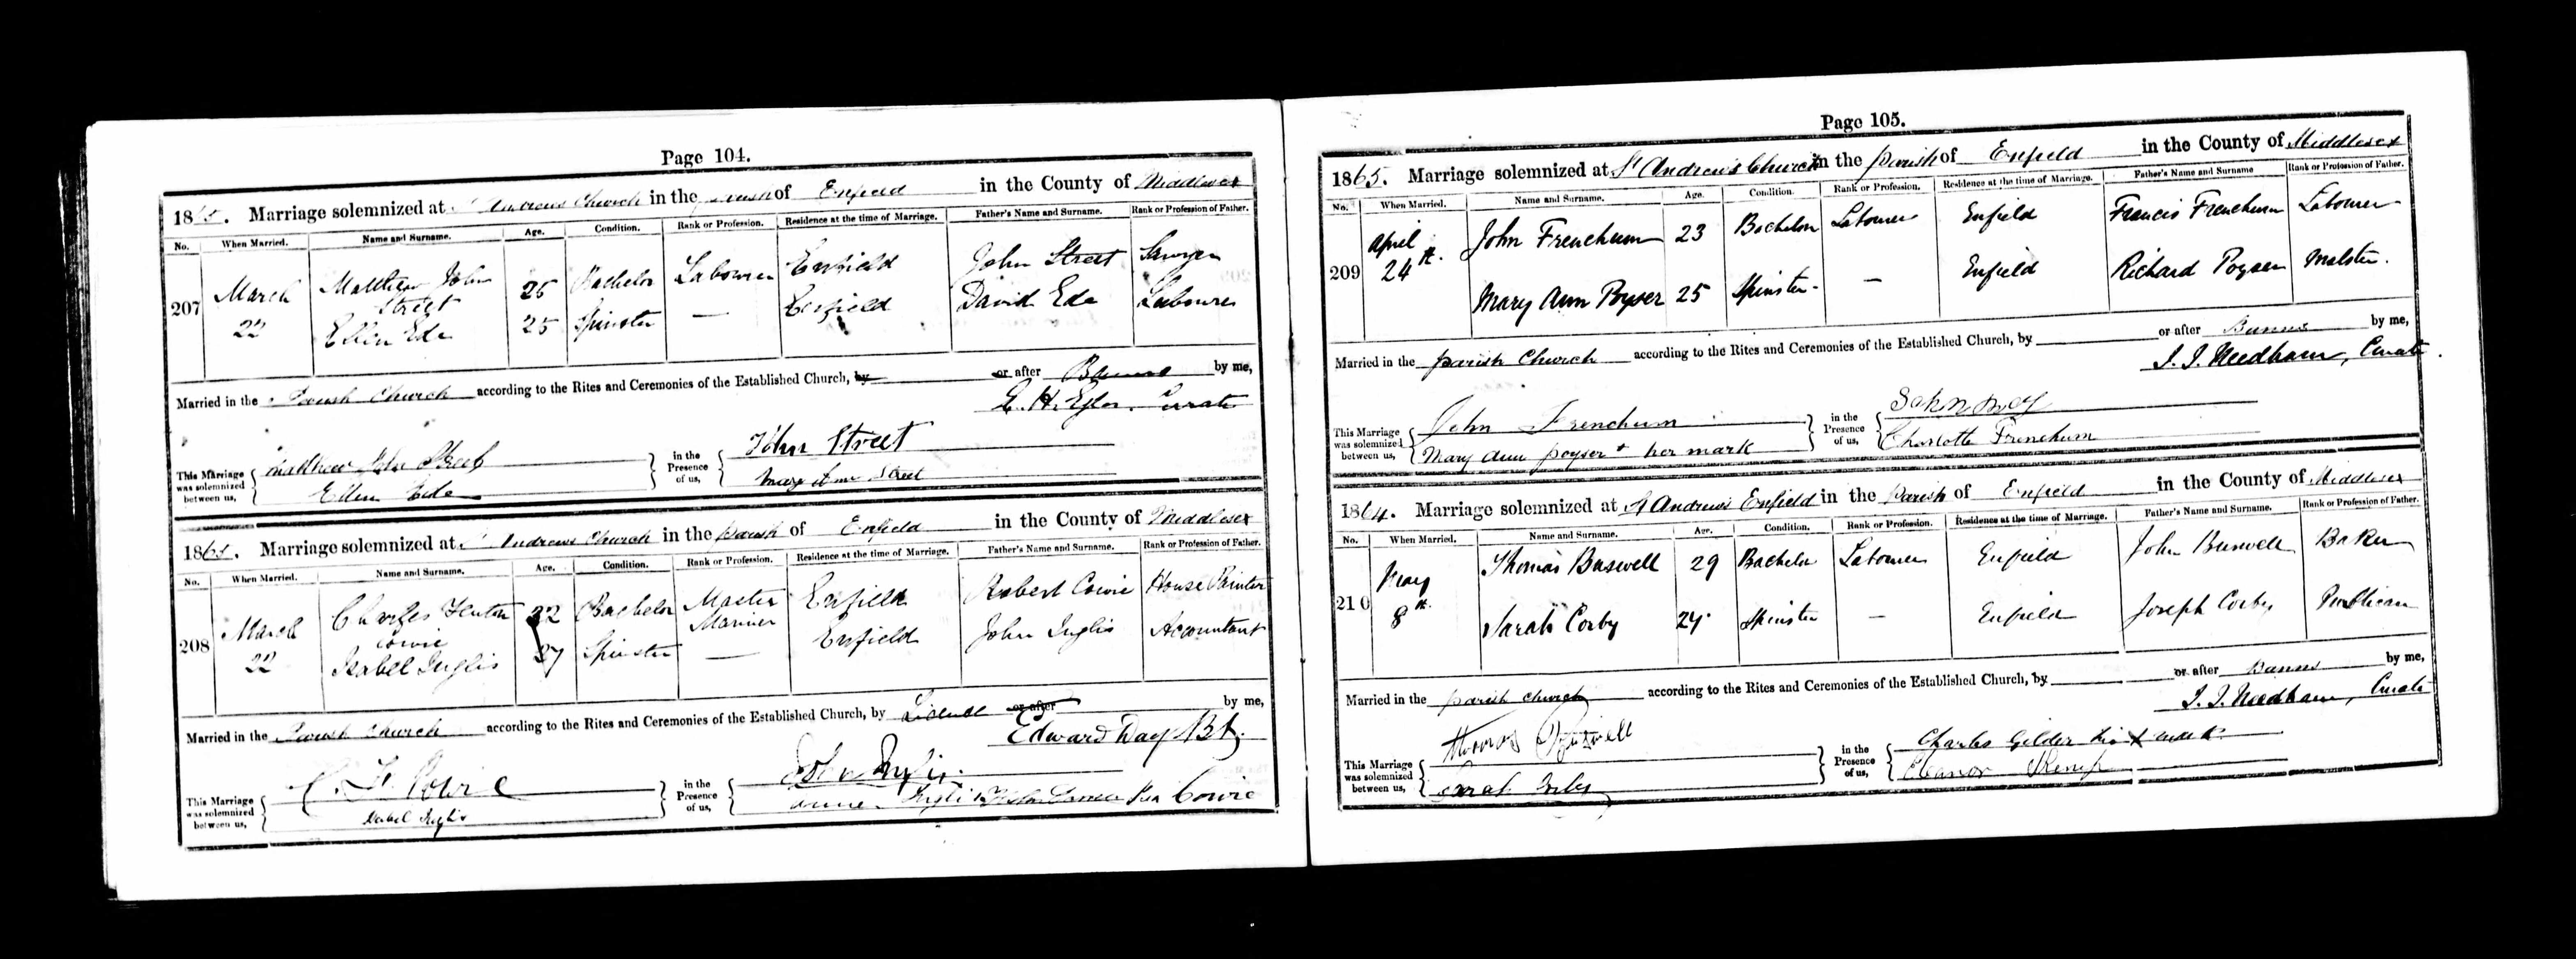 Page 104.
1865. Marriage solemnized at St Andrews Church in the parish of Enfield in the County of Middlesex
No. When Married. Name and Surname. Age. Condition. Rank or Profession. Residence at the time of Marriage. Father's Name and Surname. Rank or Profession of Father.
207 March 22 Matthew John Street 25 Bachelor Labourer Enfield John Street Sawyer
Ellen Ede 25 Spinster — Enfield David Ede Labourer
Married in the Parish Church according to the Rites and Ceremonies of the Established Church, by or after Banns by me,
Curate
This Marriage was solemnized between us, Matthew John Street Ellen Ede in the Presence of us, John Street Mary Ann Street
1865. Marriage solemnized at St Andrews Church in the Parish of Enfield in the County of Middlesex
No. When Married. Name and Surname. Age. Condition. Rank or Profession. Residence at the time of Marriage. Father's Name and Surname. Rank or Profession of Father.
208 March 22 Charles Fenton Cowie 32 Bachelor Master Mariner Enfield Robert Cowie House Painter
Isabel Inglis 27 Spinster — Enfield John Inglis Accountant
Married in the Parish Church according to the Rites and Ceremonies of the Established Church, by License or after by me,
Edward Day
This Marriage was solemnized between us, C. F. Cowie Isabel Inglis in the Presence of us, John Inglis Inglis Cowie
Page 105.
1865. Marriage solemnized at St Andrew's Church in the parish of Enfield in the County of Middlesex
No. When Married. Name and Surname. Age. Condition. Rank or Profession. Residence at the time of Marriage. Father's Name and Surname Rank or Profession of Father.
209 April 24th. John Frenchum 23 Bachelor Labourer Enfield Francis Frenchum Labourer
Mary Ann Poyser 25 Spinster — Enfield Richard Poyser Malster.
Married in the parish Church according to the Rites and Ceremonies of the Established Church, by or after Banns by me,
Needham, Curate.
This Marriage was solemnized between us, John Frenchum Mary Ann Poyser + her mark in the Presence of us, Charlotte Frenchum
1864. Marriage solemnized at St Andrews Enfield in the Parish of Enfield in the County of Middlesex
No. When Married. Name and Surname. Age. Condition. Rank or Profession. Residence at the time of Marriage. Father's Name and Surname. Rank or Profession of Father.
210 May 8th. Thomas Buswell 29 Bachelor Labourer Enfield John Buswell Baker
Sarah Corby 24 Spinster — Enfield Joseph Corby Publican
Married in the parish church according to the Rites and Ceremonies of the Established Church, by or after Banns by me,
Needham, Curate
This Marriage was solemnized between us, Thomas Buswell Sarah Corby in the Presence of us, Charles Gilder his x mark Eleanor